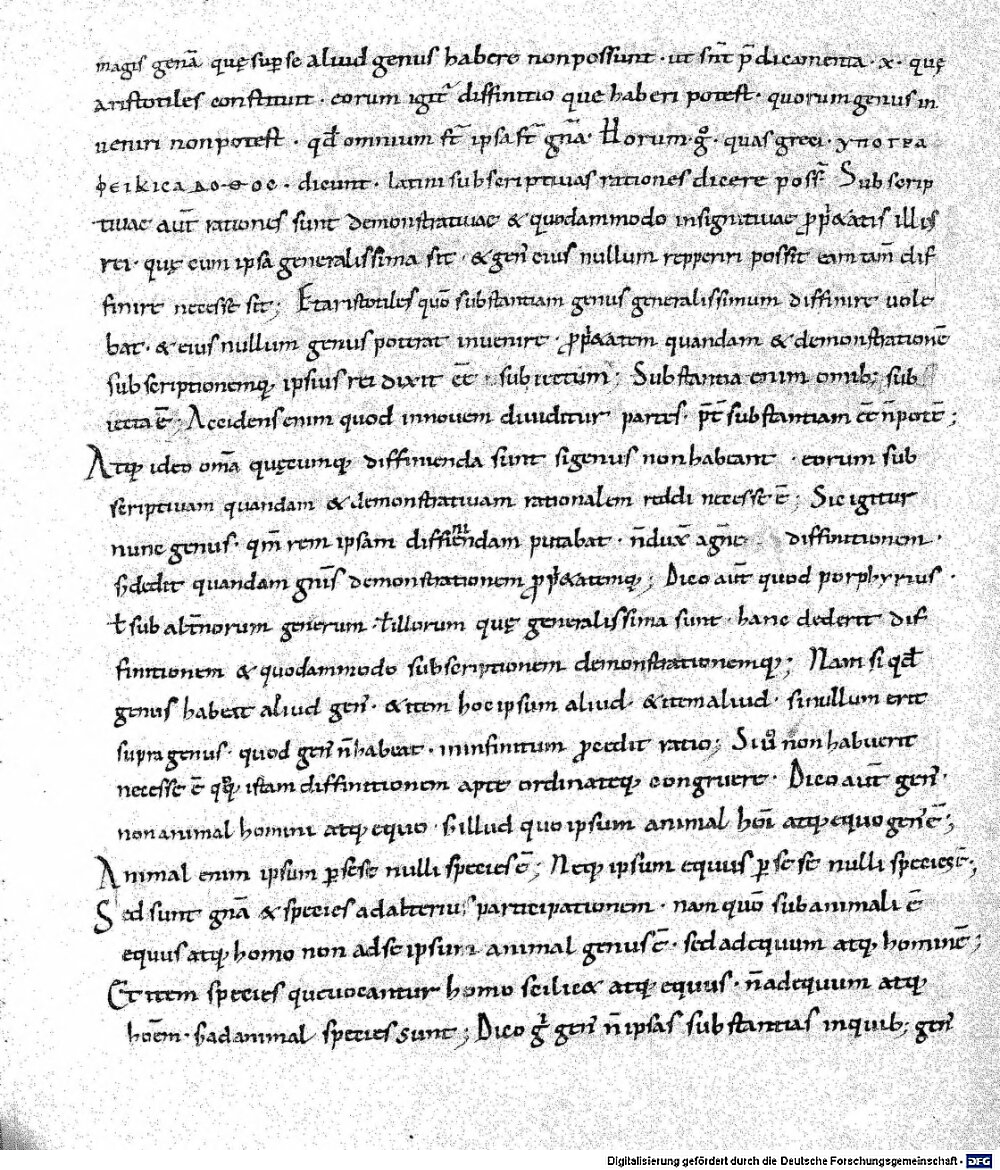 magis genā quę sup se aliud genus habere non possunt · ut sn̄t p̄dicamenta · x · quę
aristotiles constituit · eorum igit᷑ diffinitio que haberi potest · quorum genus in
ueniri non potest · qđ omnium st̄ ipsa st̄ gn̄a · Horum · g̊ · quas greci · ΥΠΟΓΡΑ
ΦΕΙΚΙCΑΔΟ·Θ·ΟC · dicunt · latini subscriptiuas rationes dicere poss᷑ Subscrip
tiuae aut̄ rationes sunt demonstratiuae & quodammodo insignitiuae ꝓp̍&atis illis
rei · quę cum ipsa generalissima sit · & gen̄ eius nullum repperiri possit eam tam̄ dif
finire necesse sit; Et aristotiles quō substantiam genus generalissimum diffinire uole
bat · & eius nullum genus poterat inuenire · ꝓp̍&atem quandam & demonstrationē
subscriptionemq; ipsius rei dixit eē · subiectum; Substantia enim omib; sub
iecta ē; Accidens enim quod in nouem diuiditur partes · pt̄ substantiam eē n̄ potē;
Atq; ideo om̄a quęcumq; diffinienda sunt si genus non habeant · eorum sub
scriptiuam quandam & demonstratiuam rationalem reddi necesse ē; Sic igitur
nunc genus · qm̄ rem ipsam diffiniendam putabat · n̄ dux̄ a gn̄e diffinitionem ·
s; dedit quandam gn̄is demonstrationem ꝓp̍&atemq;; Dico aut̄ quod porphyrius ·
ł sub alt̄norum generum · ł illorum quę generalissima sunt · hanc dederit dif
finitionem & quodammodo subscriptionem demonstrationemq;; Nam si qđ
genus habeat aliud gen᷑ · & item hoc ipsum aliud · & item aliud · si nullum erit
supra genus · quod gen᷑ n̄ habeat · in infinitum ꝓcedit ratio; Si ů non habuerit
necesse ē istam diffinitionem apte ordinateq; congruere · Dico aut̄ gen᷑ ·
non animal homini atq; equo · s; illud quo ipsum animal hōi atq; equo gen᷑ ē;
Animal enim ipsum ꝑ sese nulli species ē; Neq; ipsum equus ꝑ se se nulli species ē;
Sed sunt gn̄a & species ad alterius participationem · nam quō sub animali ē
equus atq; homo non ad se ipsum animal genus ē · sed ad equum atq; hominē;
Et item species que uocantur homo scilic& atq; equus · n̄ ad equum atq;
hoēm · s; ad animal species sunt; Dico g̊ gen᷑ n̄ ipsas substantias in quib; gen᷑